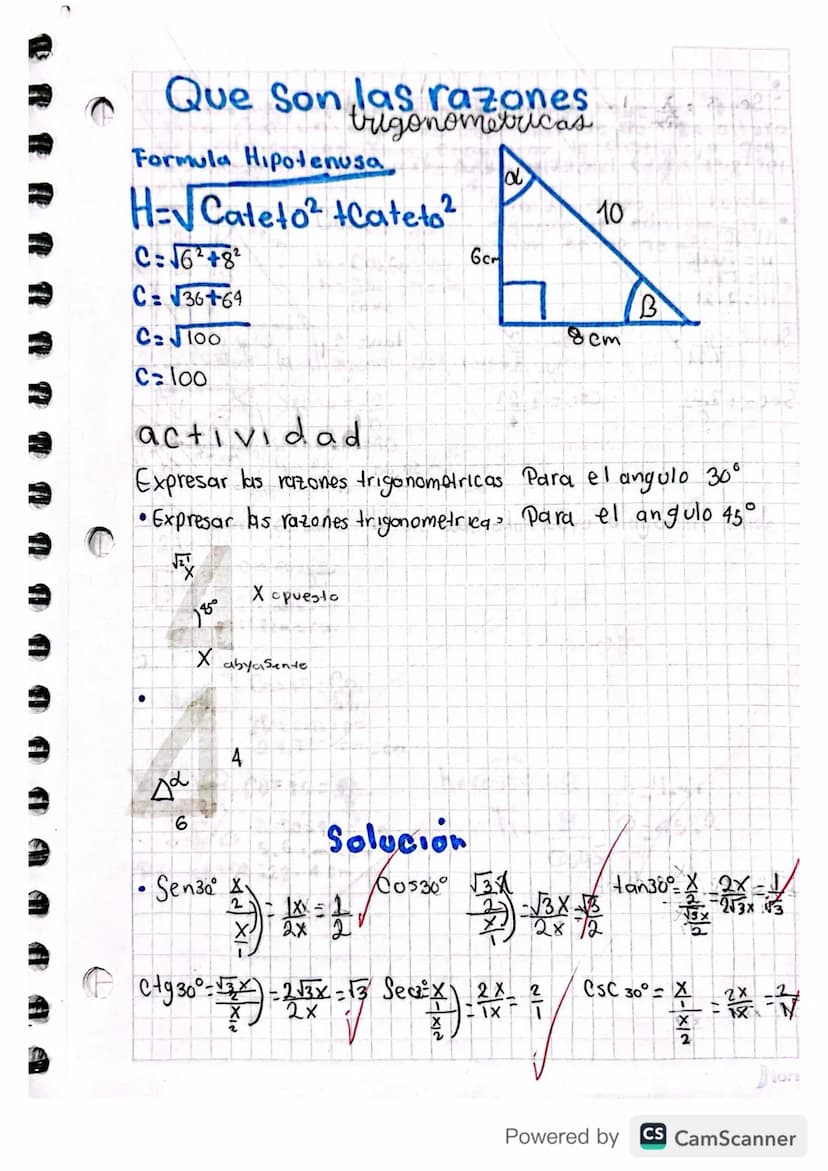 Que son las razones
trigonometricas
Formula Hipotenusa
H=√Cateto² +Cateto²
C=√6²+8²
C=√36+64
C=√100
C=100
α
10
6cm
β
8cm
actividad
Expresar las razones trigonometricas Para el angulo 30°
• Expresar las razones trigonometricas Para el angulo 45°
X opuesto
45°
X abyasente
•
4
α
6
Solución
• Sen30° X/2 / X/1) = 1X/2X = 1/2
Cos30° √3X/2 / X/1) = √3X/2X = √3/2
tan30° = X/2 / √3X/2 = 2X/2√3X = 1/√3
Ctg30° = √3X/2 / X/2) = 2√3X/2X = √3
= X/1 / X/2) = 2X/1X = 2/1
Csc 30° = X/1 / X/2 = 2X/1X = 2/1
Powered by CS CamScanner